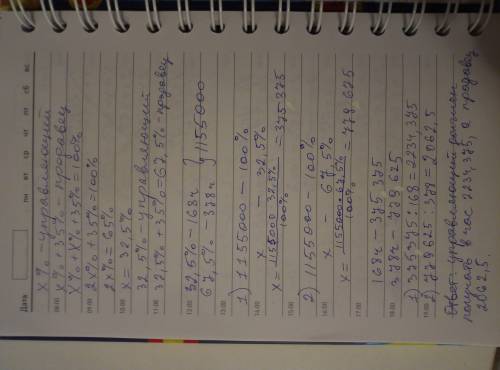 Дата
пн вт ср чт пт сб вс
x% - управляющий
08:00 x% + 35% - продавец
x% + x% + 35% = 100%
09:00 2x% + 35% = 100%
2x% = 65%
10:00 x = 32,5%
32,5% - управляющий
11:00 32,5% + 35% = 67,5% - продавец
12:00 32,5% - 168ч } 1155000
67,5% - 378ч
13:00 1) 1155000 - 100%
x - 32,5%
14:00
x = 1155000·32,5% / 100% = 375,375
15:00
2) 1155000 - 100%
16:00 x - 67,5%
x = 1155000·67,5% / 100% = 779,625
17:00
168ч - 375,375
18:00 378ч - 779625
1) 375375 : 168 = 2234,375
19:00 2) 779625 : 378 = 2062,5
Ответ: управляющий должен
получать в час 2234,375, а продавец
2062,5.